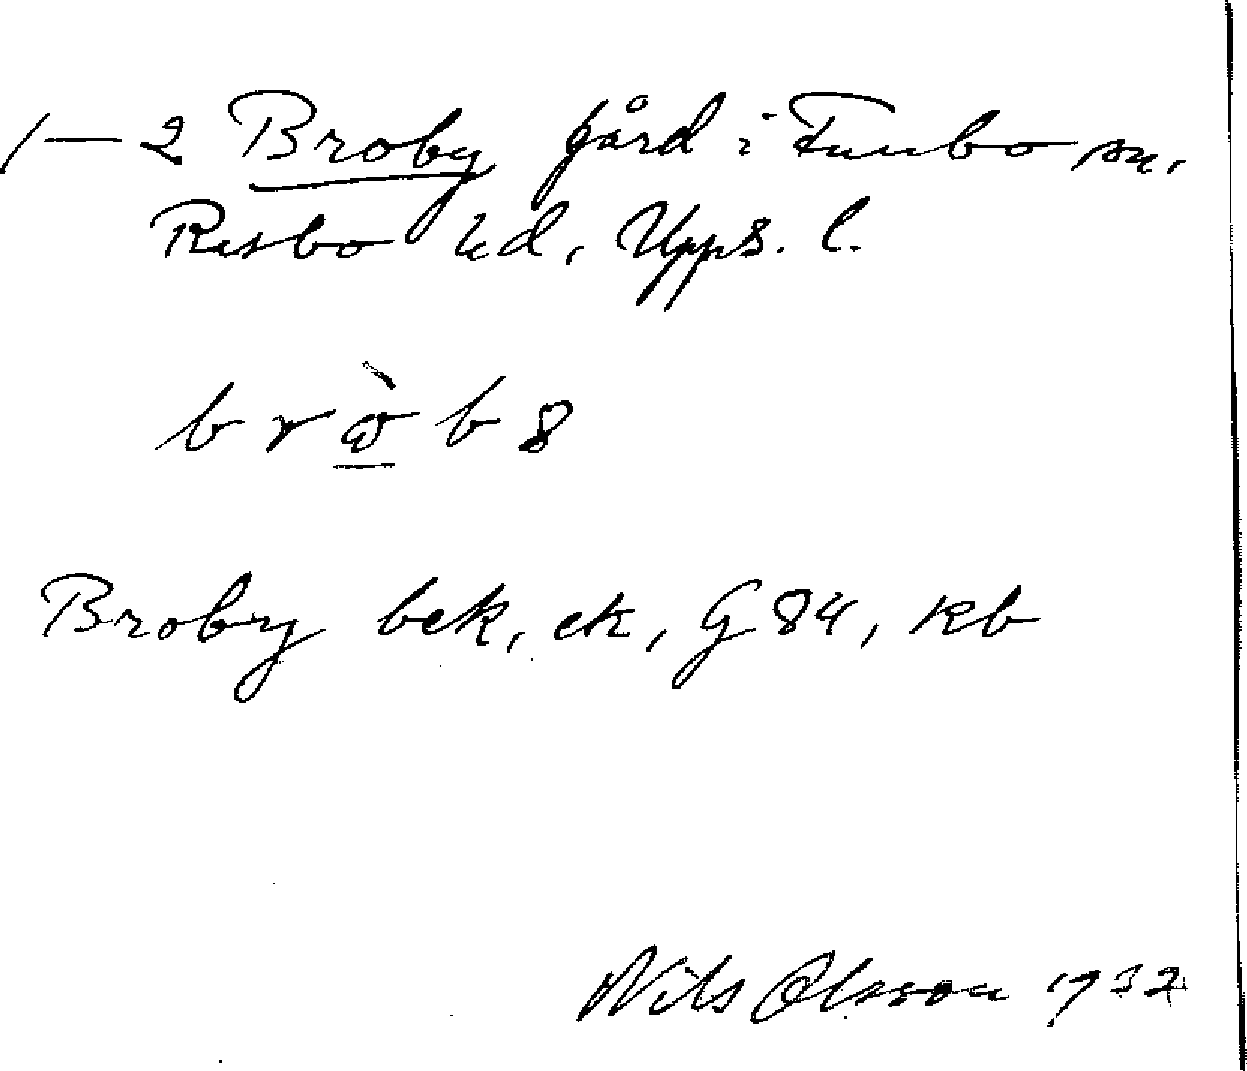 1—2 Broby gård i Funbo sn.
Rasbo hd, Upps. l.
b r ὼ b 8
Broby bek, ek, G 84, kb
Nils Olsson 1932